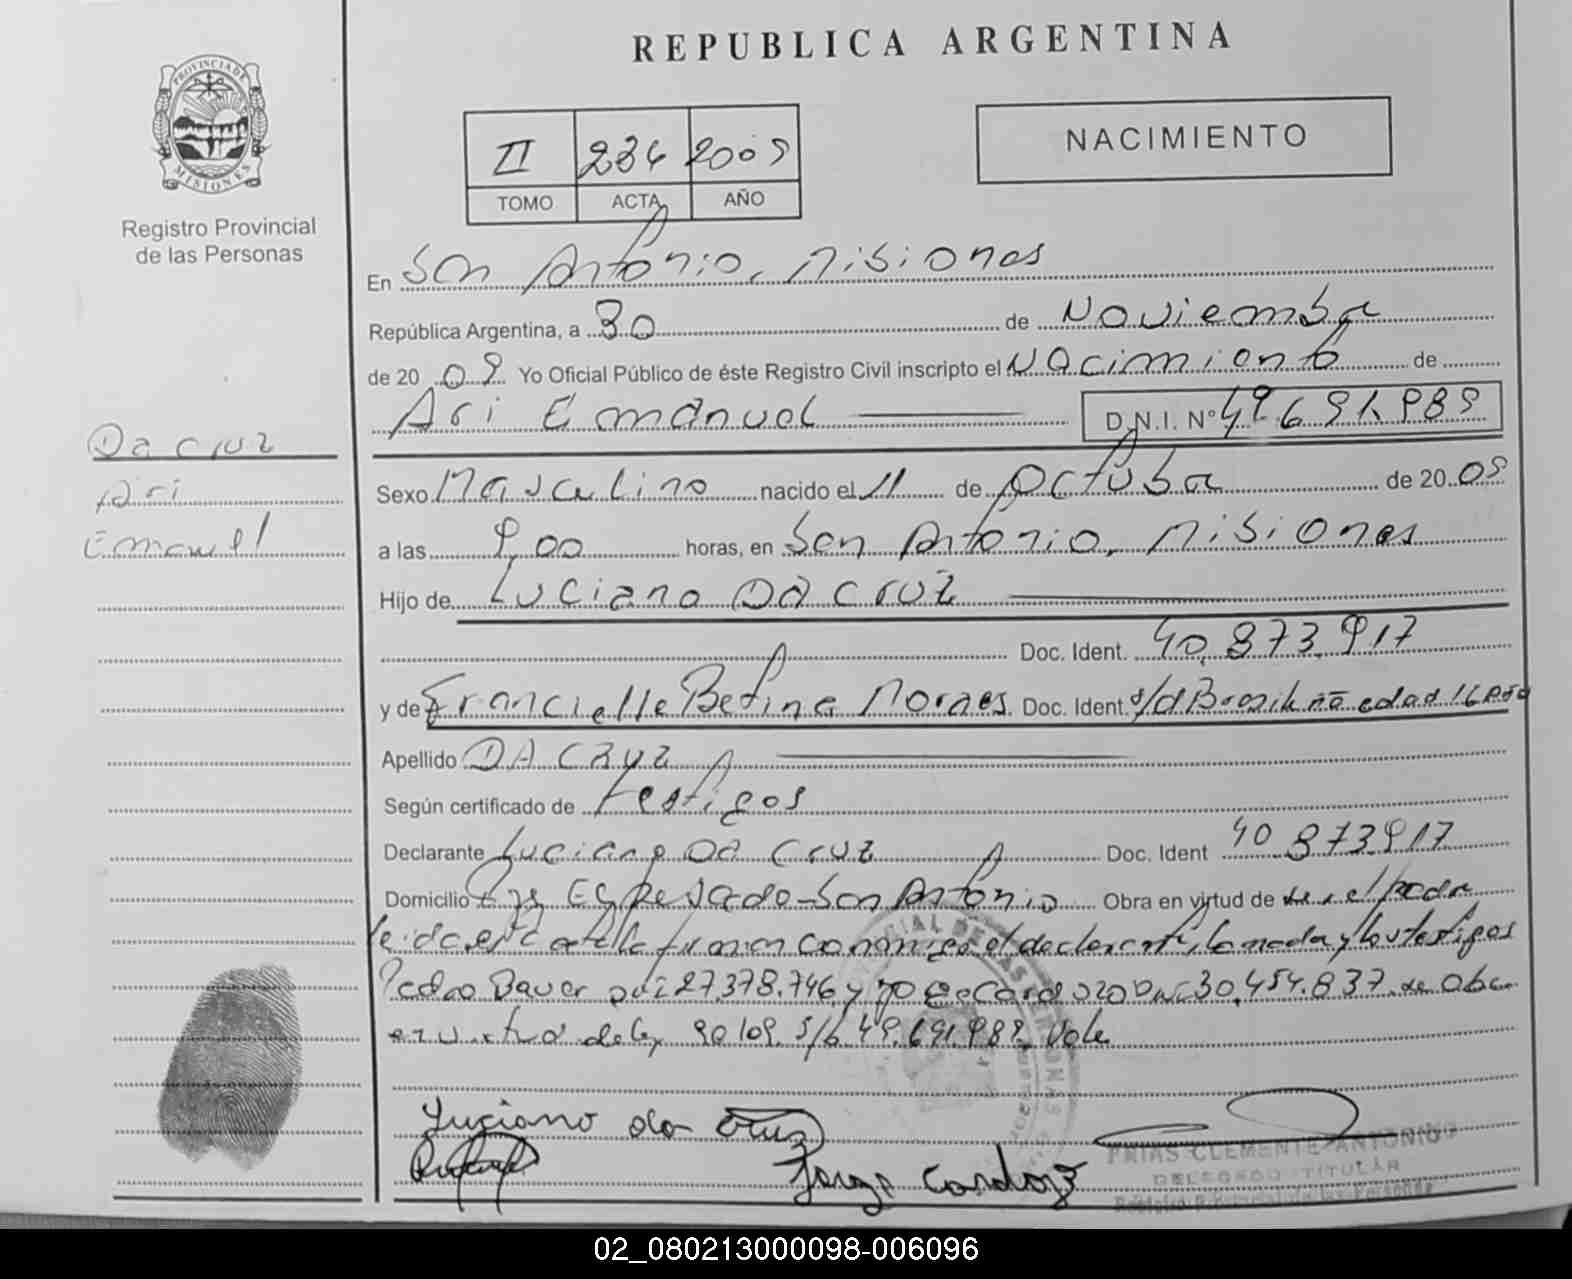 REPUBLICA ARGENTINA
PROVINCIA DE MISIONES
Registro Provincial
de las Personas
II 234 2009
TOMO ACTA AÑO
NACIMIENTO
En San Antonio, Misiones
República Argentina, a 30 de Noviembre
de 2009 Yo Oficial Público de éste Registro Civil inscripto el Nacimiento de
Ari Emanuel D.N.I. Nº 49.691.989
Da Cruz
Ari
Emanuel
Sexo Masculino nacido el 11 de Octubre de 2009
a las 9,00 horas, en San Antonio, Misiones
Hijo de Luciano Da Cruz
Doc. Ident. 40.873.917
y de Francielle Betina Moraes Doc. Ident. s/d Brasileña edad 16 años
Apellido DA CRUZ
Según certificado de testigos
Declarante Luciano Da Cruz Doc. Ident 40 873.917
Domicilio San Antonio Obra en virtud de ser el padre
leida el acta la firman conmigo el declarante, la madre y los testigos
Pedro Bauer DNI 27.378.746 y Cardozo DNI 30.454.837
en virtud de 49.691.989 Vale
Luciano da Cruz
Jorge Cardozo
FRIAS CLEMENTE ANTONIO
DELEGADO TITULAR
Registro Provincial de las Personas
02_080213000098-006096